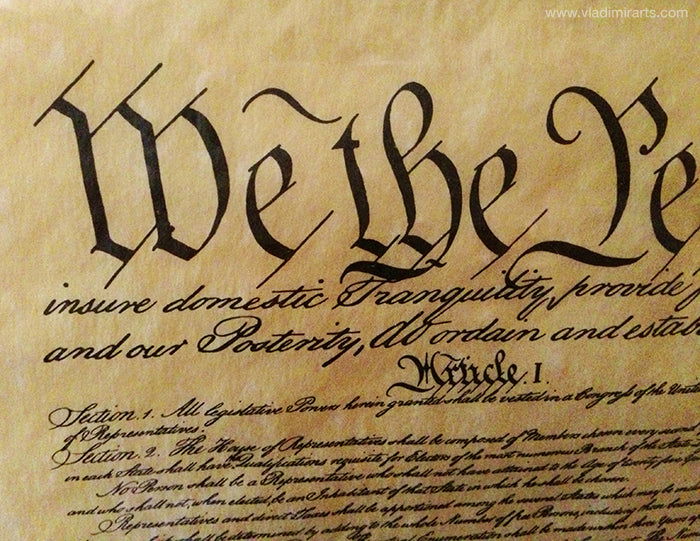 www.vladimirarts.com
We the Pe
insure domestic Tranquility, provide f
and our Posterity, do ordain and estab
Article. I.
Section. 1. All legislative Powers herein granted shall be vested in a Congress of the Unite
of Representatives.
Section. 2. The House of Representatives shall be composed of Members chosen every second
in each State shall have the Qualifications requisite for Electors of the most numerous Branch of the State
No Person shall be a Representative who shall not have attained to the Age of twenty five
and who shall not, when elected, be an Inhabitant of that State in which he shall be chosen.
Representatives and direct Taxes shall be apportioned among the several States which may be
shall be determined by adding to the whole Number of free Persons, including those
Enumeration shall be made within three Years